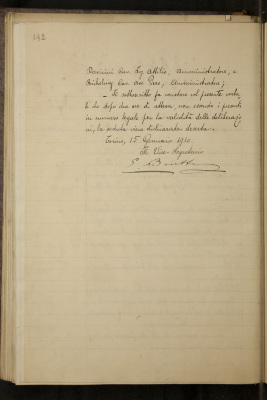 142
Cav. Ing. Attilio, Amministratore, e
Cav. Uff. Piero, Amministratore;
- Il sottoscritto fa constare col presente verba-
le che dopo due ore di attesa, non essendo i presenti
in numero legale per la validità delle deliberazio
ni, la seduta viene dichiarata deserta.
Torino, 15 Gennaio 1910.
Il Vice-Segretario